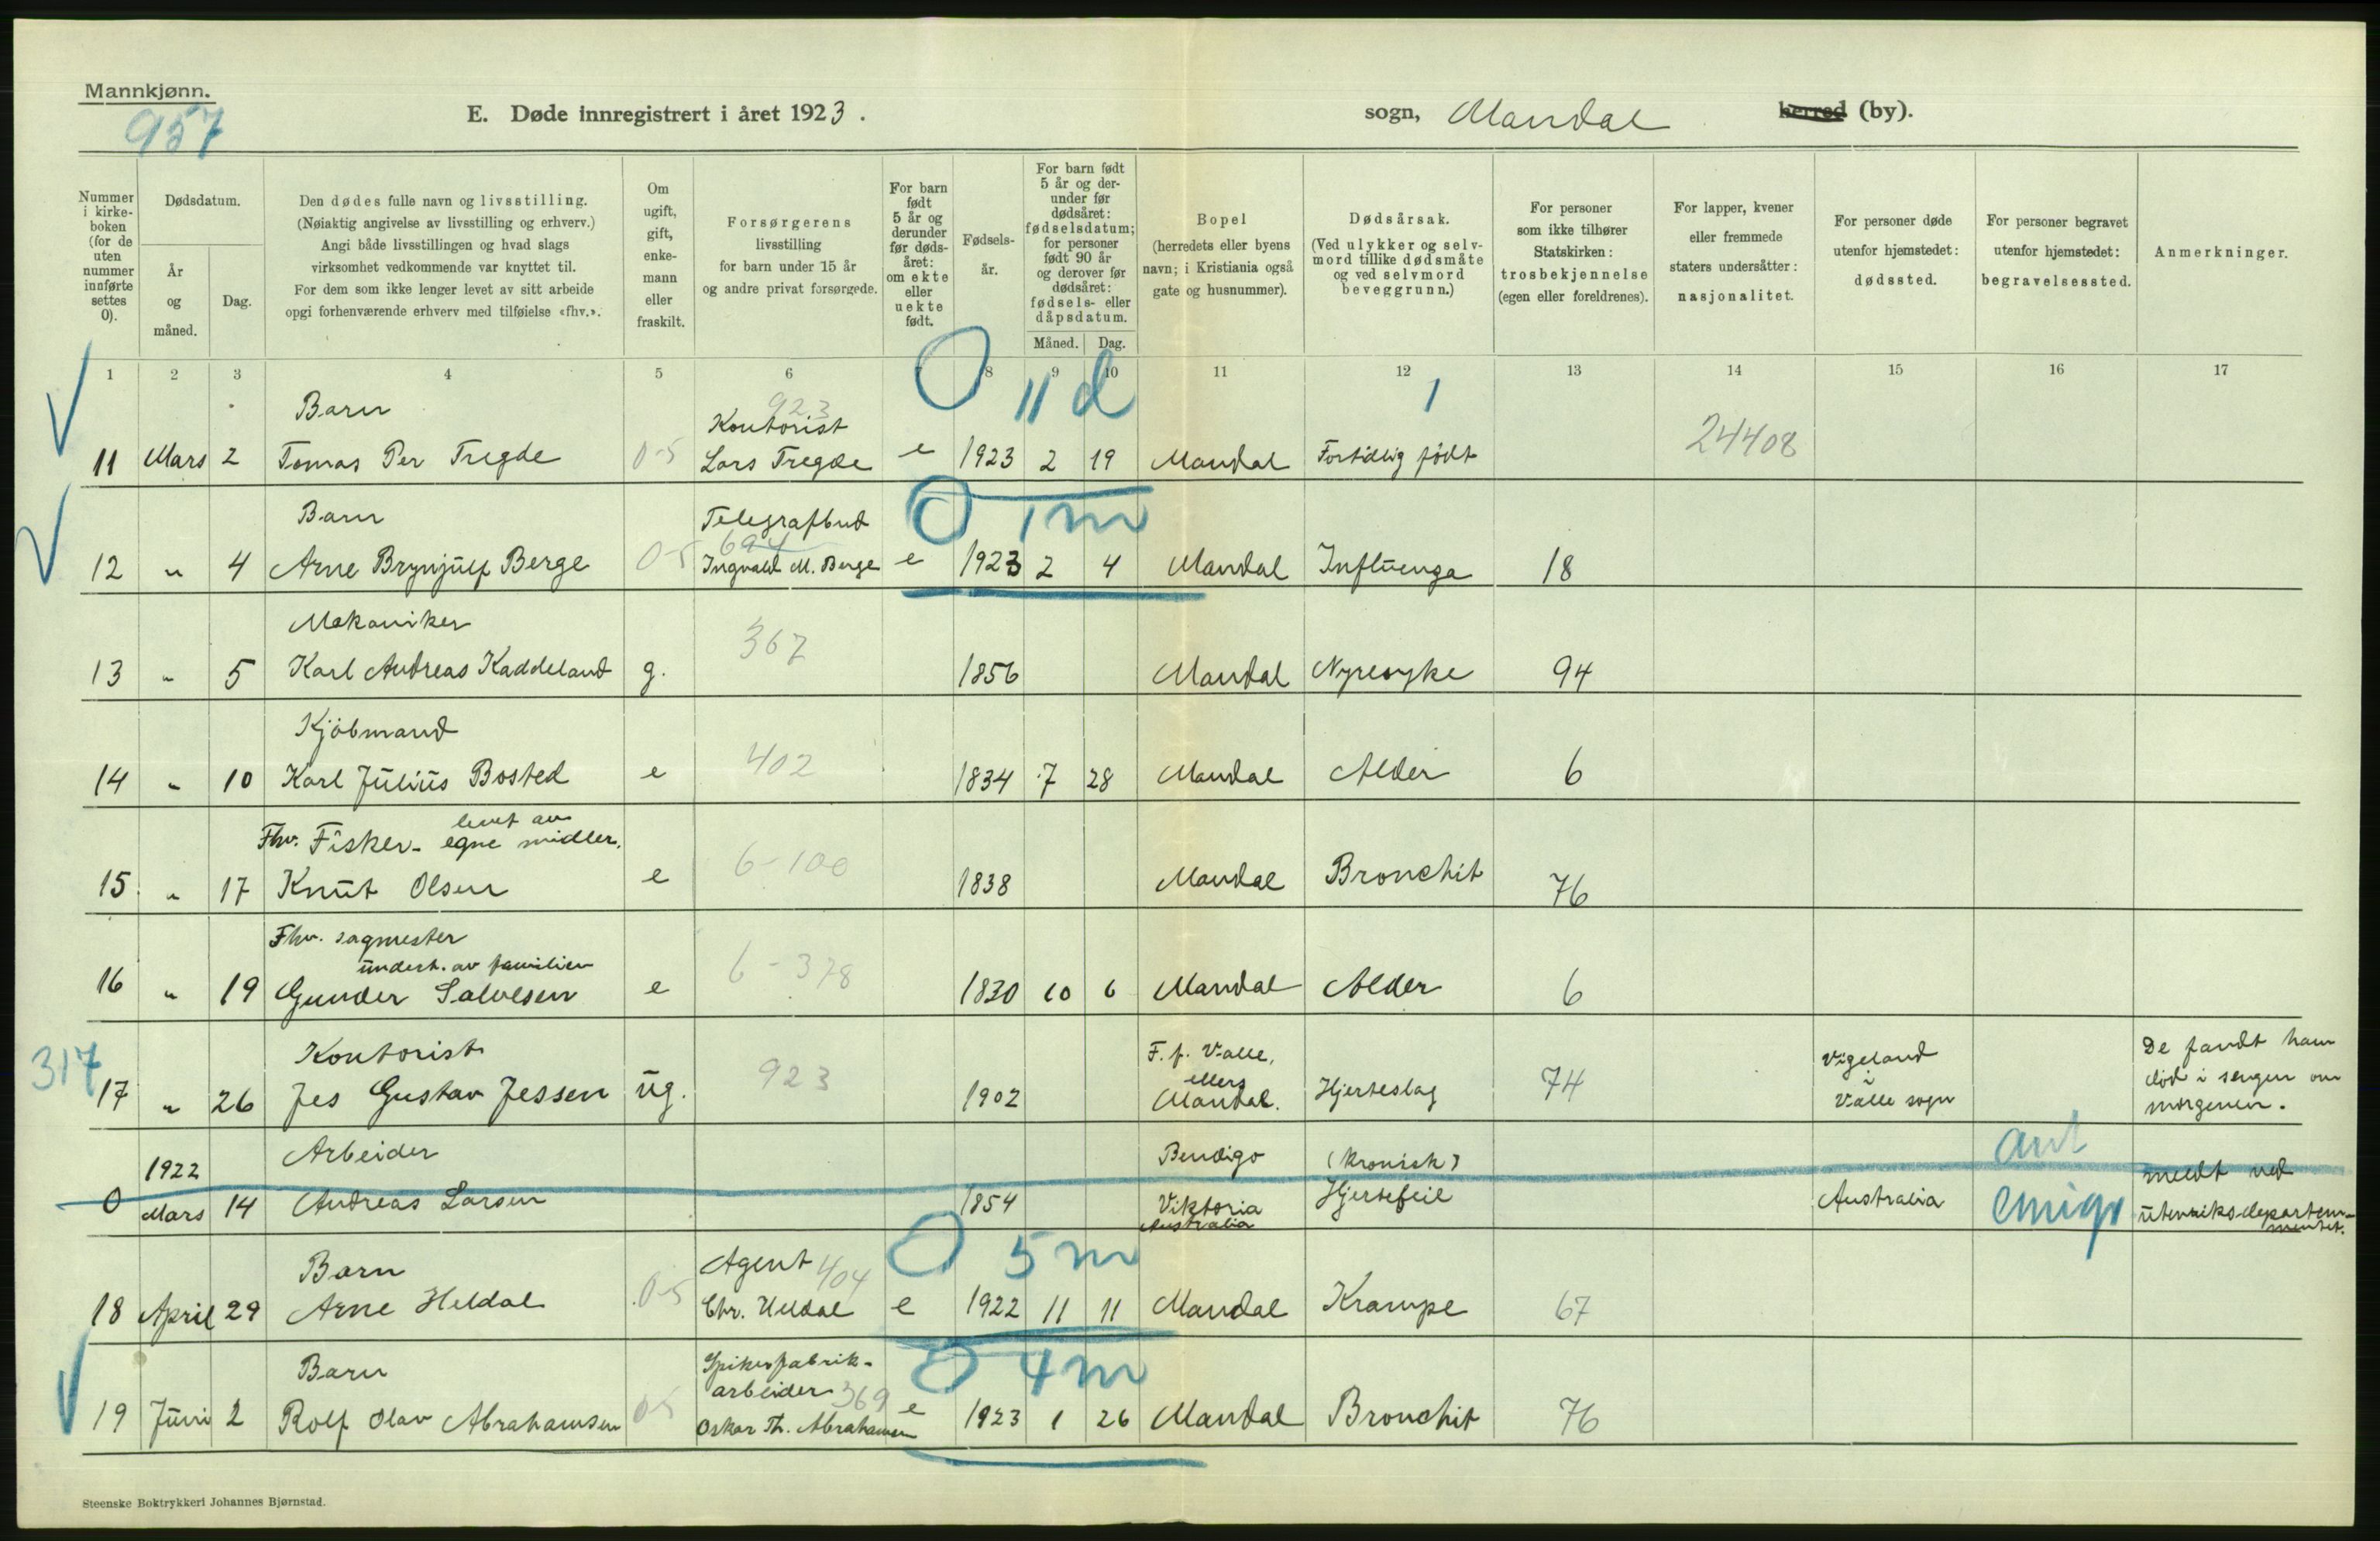 Mannkjønn.
957
E. Døde innregistrert i året 1923.
sogn, Mandal herred (by).
Nummer i kirke-boken (for de uten nummer innførte settes 0).
Dødsdatum.
År og måned.
Dag.
Den dødes fulle navn og livsstilling.
(Nøiaktig angivelse av livsstilling og erhverv.)
Angi både livsstillingen og hvad slags
virksomhet vedkommende var knyttet til.
For dem som ikke lenger levet av sitt arbeide
opgi forhenværende erhverv med tilføielse «fhv.».
Om ugift, gift, enke-mann eller fraskilt.
Forsørgerens
livsstilling
for barn under 15 år
og andre privat forsørgede.
For barn født 5 år og derunder før døds-året: om ekte eller uekte født.
Fødsels-år.
For barn født 5 år og der-under før dødsåret: fødselsdatum; for personer født 90 år og derover før dødsåret: fødsels- eller dåpsdatum.
Måned.
Dag.
Bopel
(herredets eller byens
navn; i Kristiania også
gate og husnummer).
Dødsårsak.
(Ved ulykker og selv-
mord tillike dødsmåte
og ved selvmord
beveggrunn.)
For personer
som ikke tilhører
Statskirken:
trosbekjennelse
(egen eller foreldrenes).
For lapper, kvener
eller fremmede
staters undersåtter:
nasjonalitet.
For personer døde
utenfor hjemstedet:
dødssted.
For personer begravet
utenfor hjemstedet:
begravelsessted.
Anmerkninger.
1 2 3 4 5 6 7 8 9 10 11 12 13 14 15 16 17
0 11 d 1
Barn 923 Kontorist
11 Mars 2 Tomas Per Tregde 0-5 Lars Tregde e 1923 2 19 Mandal Fortidlig født 24408
Barn Telegrafbud 0 1 m
694
12 " 4 Arne Brynjulf Berge 0-5 Ingvald M. Berge e 1923 2 4 Mandal Influenza 18
Mekaniker 367
13 " 5 Karl Andreas Kaddeland g. 1856 Mandal Nyresyke 94
Kjöbmand
14 " 10 Karl Julius Bosted e 402 1834 7 28 Mandal Alder 6
levet av
Fhv. Fisker- egne midler.
15 " 17 Knut Olsen e 6-100 1838 Mandal Bronchit 76
Fhv. sagmester
underh. av familien
16 " 19 Gunder Salvesen e 6-378 1830 10 6 Mandal Alder 6
317 Kontorist
17 " 26 Jes Gustav Jessen ug. 923 1902 F. f. Valle, ellers Mandal. Hjerteslag 74 Vigeland i Valle sogn De fandt ham död i sengen om morgenen.
1922 Arbeider Bendigo (kronisk) ant meldt ved
0 Mars 14 Andreas Larsen 1854 Viktoria Australia Hjertefeil Australia emigr utenriksdepartem-mentet.
Barn Agent 404 0 5 m
18 April 29 Arne Heldal 0-5 Chr. Heldal e 1922 11 11 Mandal Krampe 67
Barn Spikerfabrik-arbeider 369 0 4 m
19 Juni 2 Rolf Olav Abrahamsen 0-5 Oskar Th. Abrahamsen e 1923 1 26 Mandal Bronchit 76
Steenske Boktrykkeri Johannes Bjørnstad.